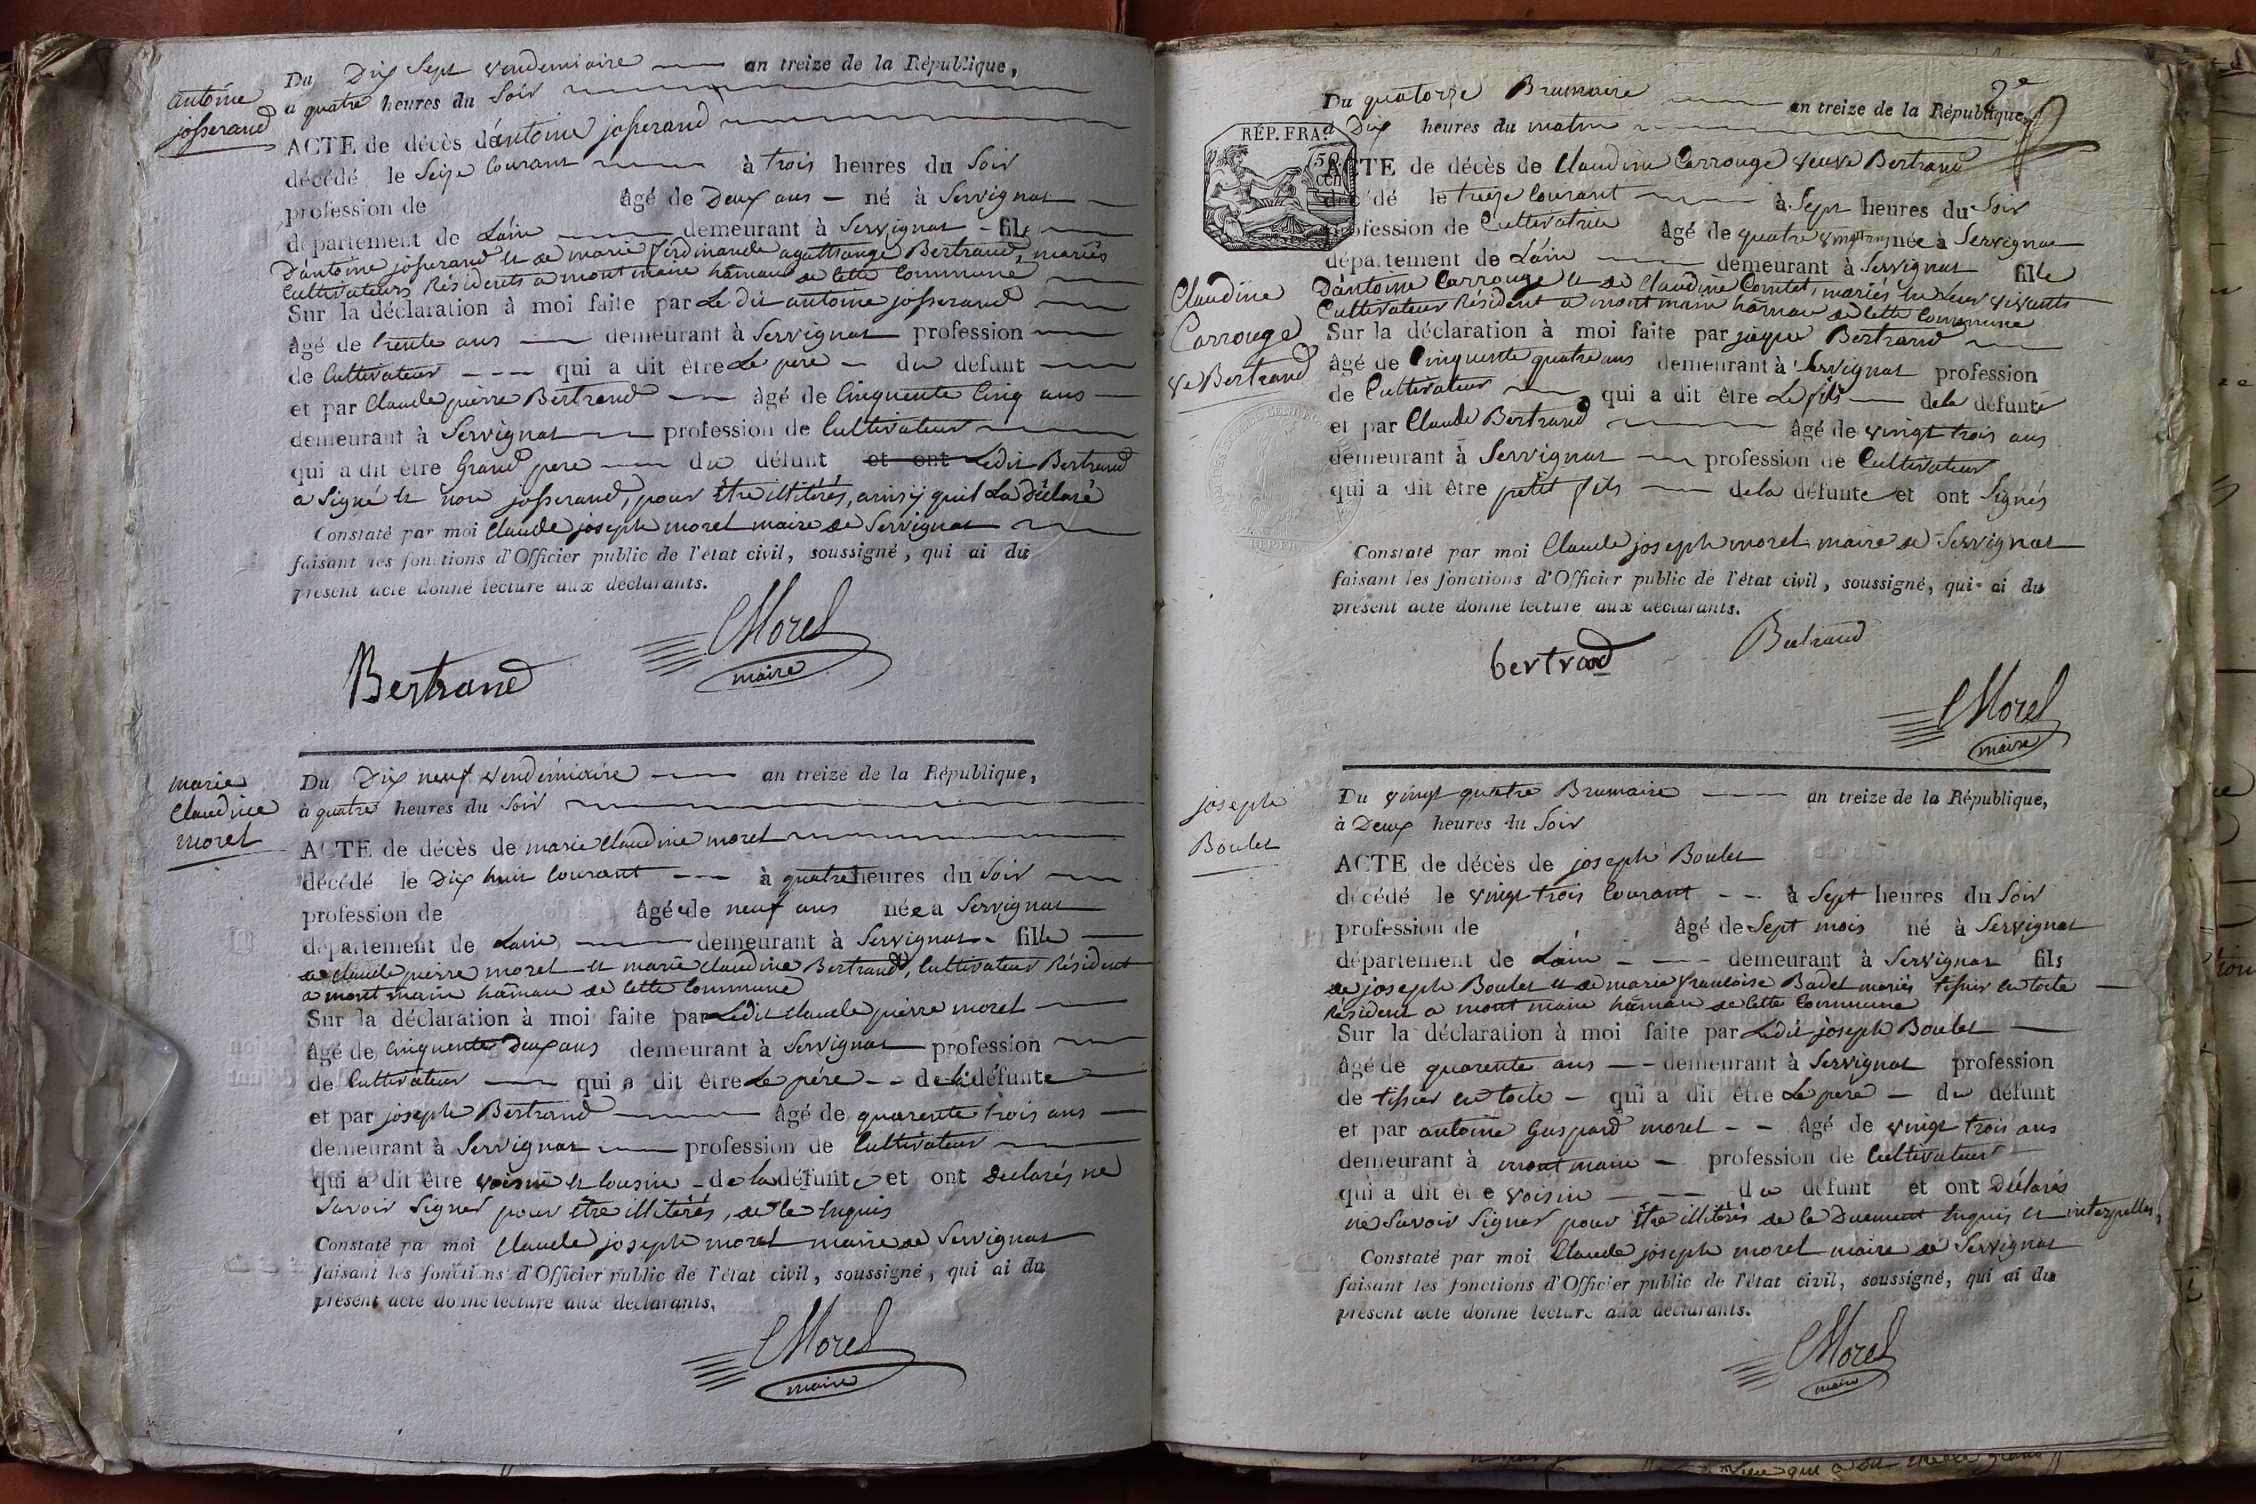 antoine
josserand
Du Dix Sept vendemiaire an treize de la République,
a quatre heures du Soir
ACTE de décès d'antoine josserand
décédé le Seize Courant à trois heures du Soir
profession de âgé de Deux ans né à Servignat
département de Lain demeurant à Servignat fils
D'antoine josserand et de marie ferdinande agathange Bertrand, mariés
Cultivateurs Résidents a montmain hâmau de cette Commune
Sur la déclaration à moi faite par Le dit antoine josserand
âgé de trente ans demeurant à Servignat profession
de Cultivateur qui a dit être Le pere du défunt
et par Claude pierre Bertrand âgé de Cinquente Cinq ans
demeurant à Servignat profession de Cultivateur
qui a dit être Grand pere du défunt et ont Ledit Bertrand
a Signé et non josserand, pour être illitérés, ainsÿ quil La Déclaré
Constaté par moi Claude joseph morel maire de Servignat
faisant les fonctions d'Officier public de l'état civil, soussigné, qui ai du
présent acte donné lecture aux déclarants.
Bertrand
Morel
maire
marie
Claudine
morel
Du Dix neuf vendémiaire an treize de la République,
à quatre heures du Soir
ACTE de décès de marie Claudine morel
décédé le Dix huit Courant à quatre heures du Soir
profession de âgée de neuf ans née a Servignat
département de Lain demeurant à Servignat fille
de claude pierre morel et marie Claudine Bertrand, Cultivateur Résident
a montmain hâmau de Cette Commune
Sur la déclaration à moi faite par Ledit Claude pierre morel
âgé de Cinquente Deux ans demeurant à Servignat profession
de Cultivateur qui a dit être Le pére de la défunte
et par joseph Bertrand âgé de quarente trois ans
demeurant à Servignat profession de Cultivateur
qui a dit être voisin et Cousin de la défunte et ont Déclarés ne
Savoir Signer pour être illitérés, de Ce Enquis
Constaté par moi Claude joseph morel maire de Servignat
faisant les fonctions d'Officier public de l'état civil, soussigné, qui ai du
présent acte donné lecture aux déclarants.
Morel
maire
2e
RÉP. FRA.
50
CEN
Du quatorze Brumaire an treize de la République,
à Dix heures du matin
ACTE de décès de Claudine Carrouge veuve Bertrand
décédé le treize Courant à Sept heures du Soir
profession de Cultivatrice âgé de quatre vingt née à Servignat
département de Lain demeurant à Servignat fille
D'antoine Carrouge et de Claudine Comtet, mariés en Leur vivants
Cultivateur Résident a mont main hâmau de Cette Commune
Claudine
Carrouge
ve Bertrand
Sur la déclaration à moi faite par jâque Bertrand
âgé de Cinquente quatre ans demeurant à Servignat profession
de Cultivateur qui a dit être Le fils de la défunte
et par Claude Bertrand âgé de vingt trois ans
demeurant à Servignat profession de Cultivateur
qui a dit être petit fils de la défunte et ont Signés
Constaté par moi Claude joseph morel maire de Servignat
faisant les fonctions d'Officier public de l'état civil, soussigné, qui ai du
présent acte donné lecture aux déclarants.
bertrand
Bertrand
Morel
maire
joseph
Boulet
Du vingt quatre Brumaire an treize de la République,
à Deux heures du Soir
ACTE de décès de joseph Boulet
décédé le vingt trois Courant à Sept heures du Soir
profession de âgé de Sept mois né à Servignat
département de Lain demeurant à Servignat fils
de joseph Boulet et de marie francoise Badet mariés tissier en toile
Résident a mont main hâmau de Cette Commune
Sur la déclaration à moi faite par Ledit joseph Boulet
âgé de quarente ans demeurant à Servignat profession
de tissier en toile qui a dit être Le pere du défunt
et par antoine Gaspard morel âgé de vingt trois ans
demeurant à mont main profession de Cultivateur
qui a dit être voisin du défunt et ont Déclarés
ne Savoir Signer pour être illitérés de Ce Duement Enquis et interpellés,
Constaté par moi Claude joseph morel maire de Servignat
faisant les fonctions d'Officier public de l'état civil, soussigné, qui ai du
présent acte donné lecture aux déclarants.
Morel
maire